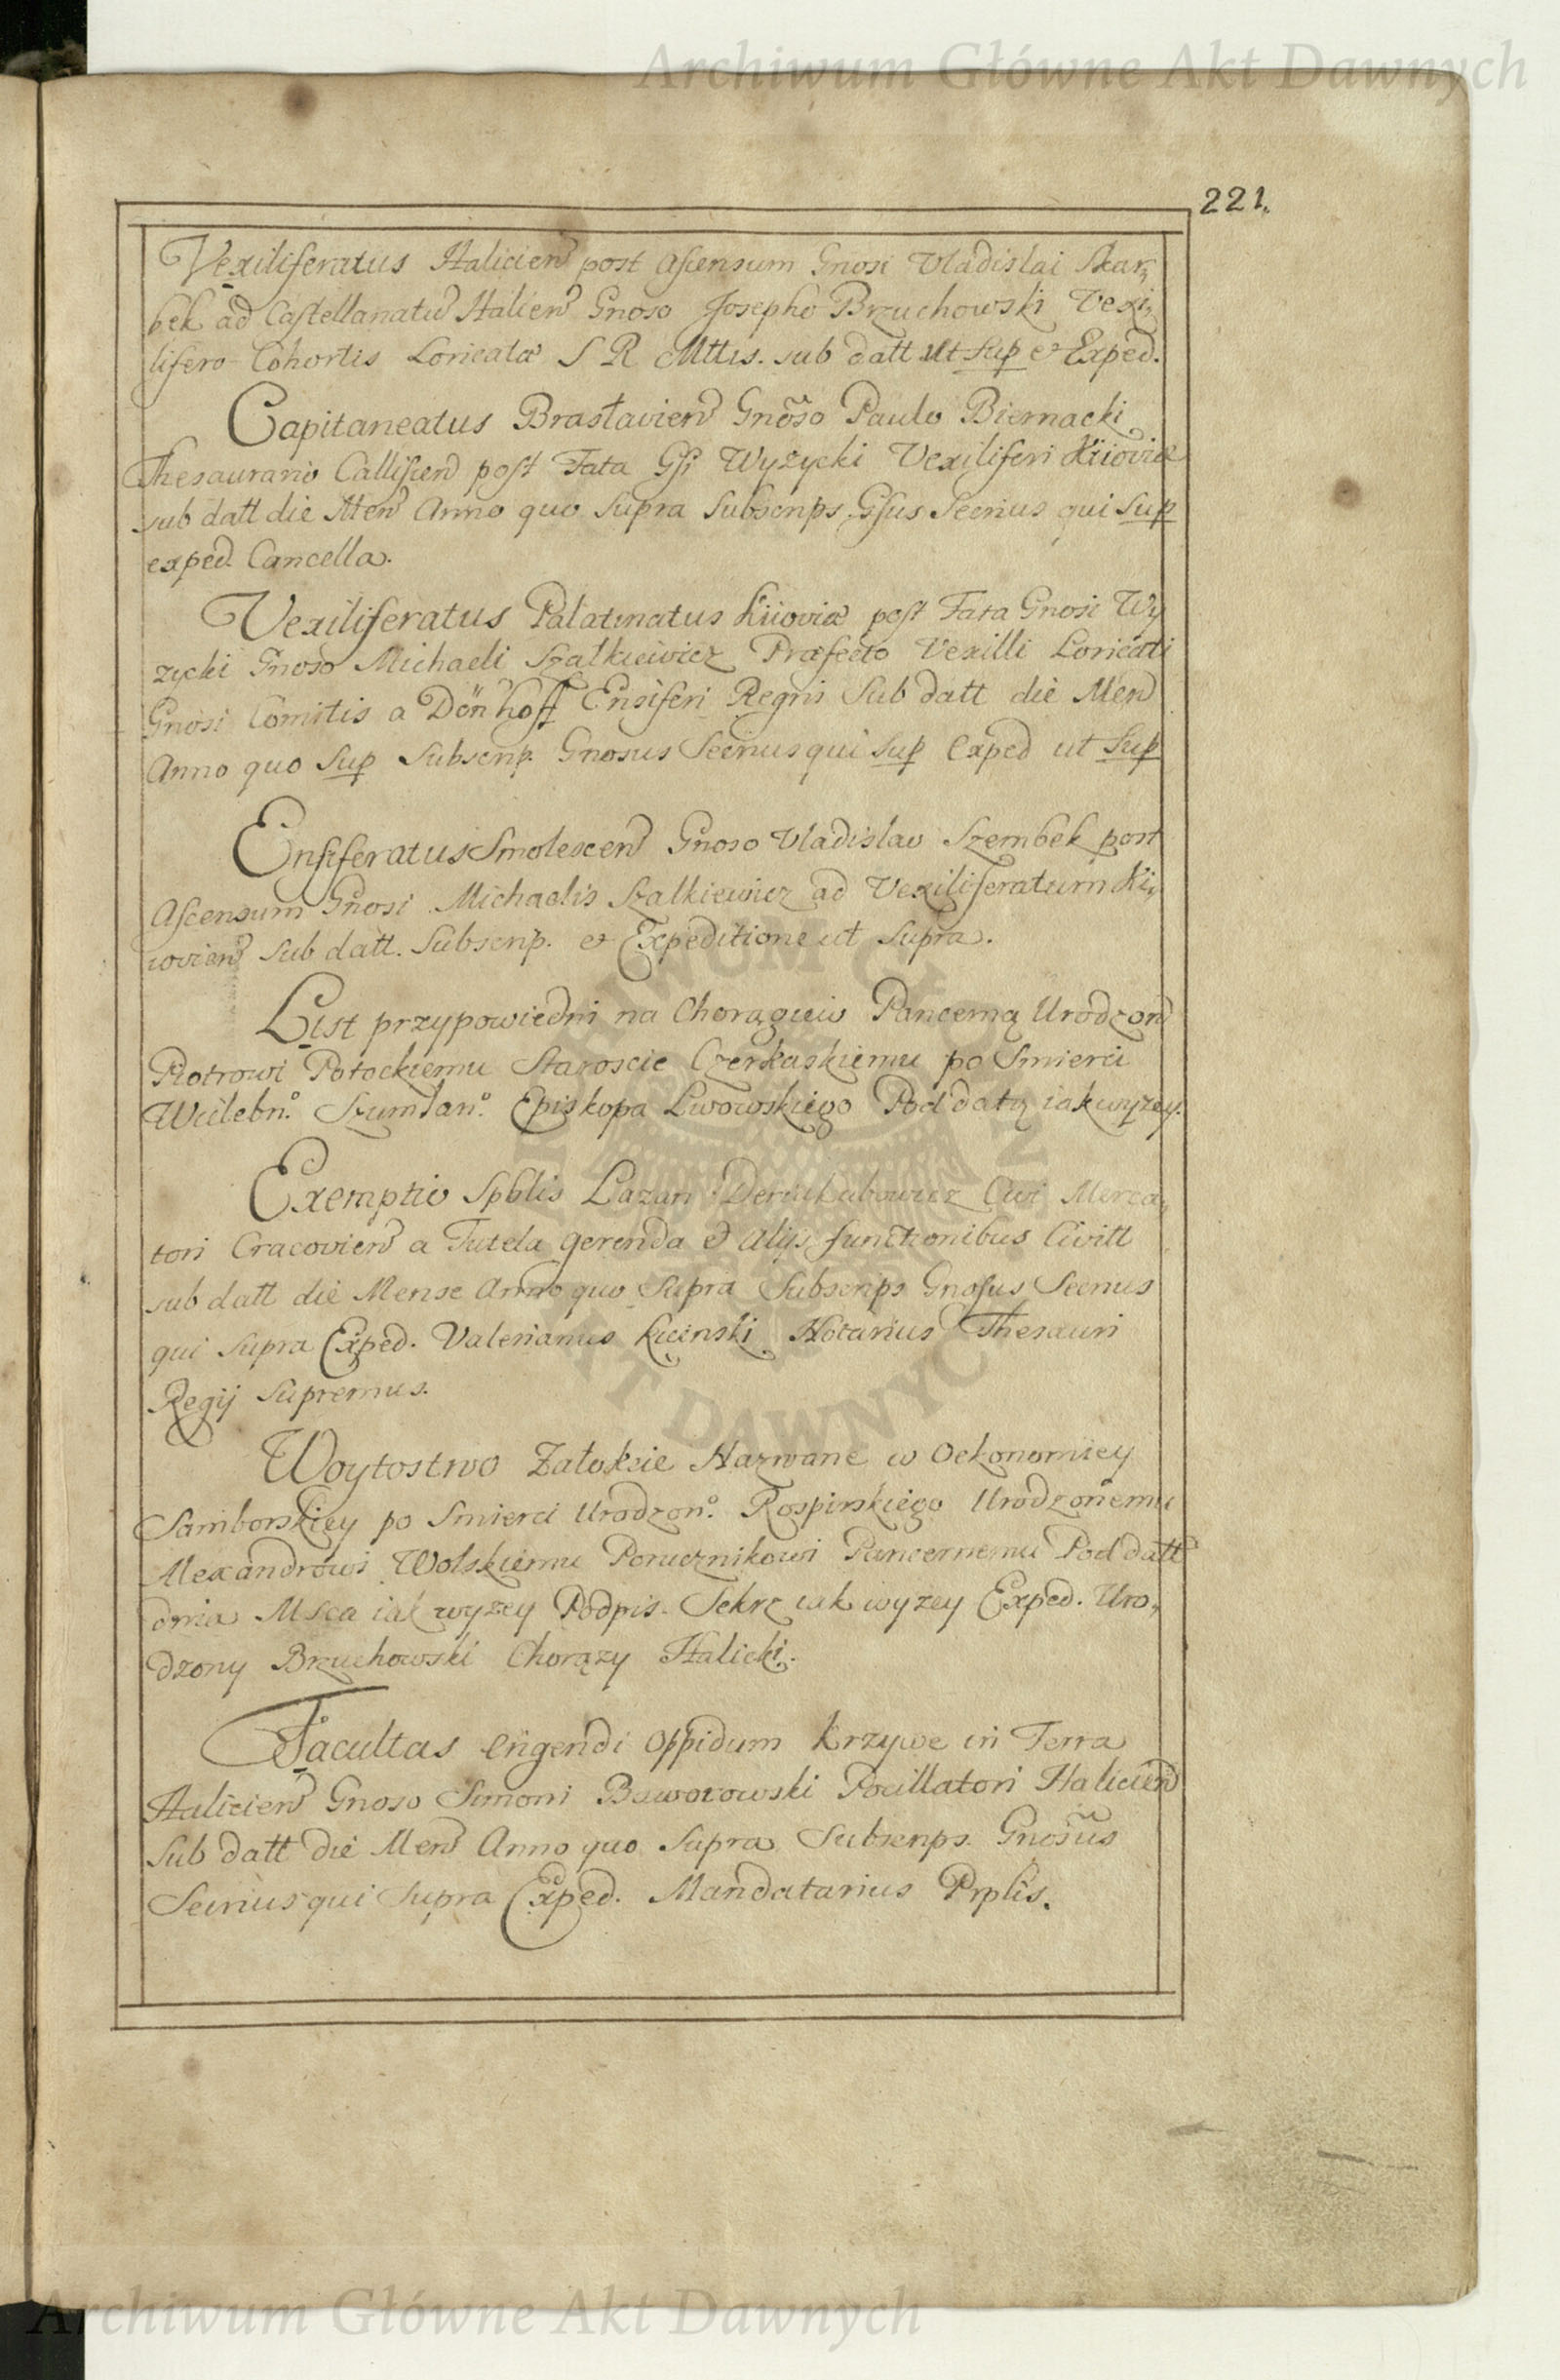 Archiwum Główne Akt Dawnych
221.
Vexiliferatus Halicien post Ascensum Gnosi Vladislai Skar,
bek ad Castellanatu Halicen Gnoso Josepho Brzuchowski Vexi,
lifero Cohortis Loricatæ S R Mttis. sub datt ut Sup et Exped.
Capitaneatus Brasłavien Gnoso Paulo Biernacki
Thesaurario Callisien post Fata Gsi Wyzycki Vexiliferi Kiioviæ
sub datt die Men Anno quo Supra Subscrips. Gsus Secrius qui Sup
exped. Cancella.
Vexiliferatus Palatinatus Kiioviæ post Fata Gnosi Wy
zycki Gnoso Michaeli Szalkiewicz Præfecto Vexilli Loricati
Gnosi Comitis a Dönhoff Ensiferi Regni Sub datt die Men
Anno quo Sup Subscrip. Gnosus Secrius qui Sup Exped ut Sup
Ensiferatus Smolescen Gnoso Vladislao Szembek post
Ascensum Gnosi Michaelis Szalkiewicz ad Vexiliferatum Ki,
iovien sub datt. Subscrip. et Expeditione ut Supra.
List przypowiedni na Chorągiew Pancerną Urodzon
Piotrowi Potockiemu Staroscie Czerkaskiemu po Smierci
Wielebn.º Szumlan.º Episkopa Lwowskiego Pod datą iak wyzey.
Exemptio Spblis Lazari Civi Merca,
tori Cracovien a Tutela gerenda et alijs functionibus Civitt
sub datt die Mense Anno quo Supra Subscrips Gnosus Secrius
qui Supra Exped. Valerianus Kicinski Notarius Thesauri
Regij Supremus.
Woytostwo Załokcie Nazwane w Oekonomiey
Samborskiey po Smierci Urodzon.º Rospirskiego Urodzonemu
Alexandrowi Wolskiemu Porucznikowi Pancernemu Pod datt
dnia Msca iak wyzey Podpis. Sekrz iak wyzey Exped. Uro,
dzony Brzuchowski Chorązy Halicki.
Facultas erigendi Oppidum Krzywe in Terra
Halicien Gnoso Simoni Baworowski Pocillatori Halicien
Sub datt die Men Anno quo Supra Subscrips. Gnosus
Secrius qui Supra Exped. Mandatarius Prplis.
Archiwum Główne Akt Dawnych